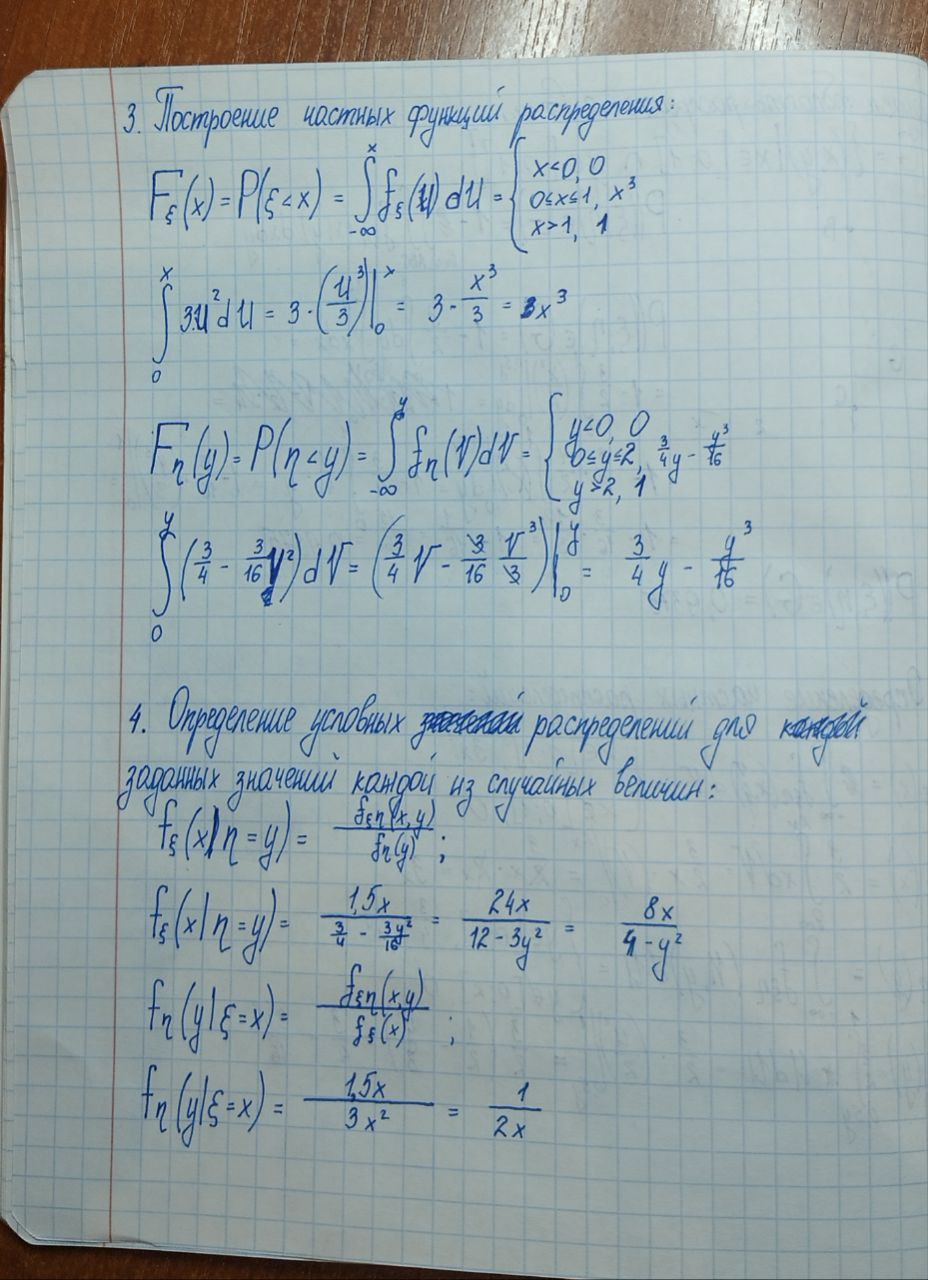 3. Построение частных функций распределения:
F_ξ(x) = P(ξ < x) = ∫_{-∞}^{x} f_ξ(u) du = { x<0, 0
0≤x≤1, x³
x>1, 1
∫_0^x 3u² du = 3 · (u³/3)|_0^x = 3 · x³/3 = x³
F_η(y) = P(η < y) = ∫_{-∞}^{y} f_η(V) dV = { y<0, 0
0≤y≤2, 3/4 y - y³/16
y>2, 1
∫_0^y (3/4 - 3/16 V²) dV = (3/4 V - 3/16 V³/3)|_0^y = 3/4 y - y³/16
4. Определение условных распределений для
заданных значений каждой из случайных величин:
f_ξ(x|η=y) = f_ξη(x,y)/f_η(y) ;
f_ξ(x|η=y) = 1,5x/(3/4 - 3y²/16) = 24x/(12-3y²) = 8x/(4-y²)
f_η(y|ξ=x) = f_ξη(x,y)/f_ξ(x) ;
f_η(y|ξ=x) = 1,5x/3x² = 1/2x